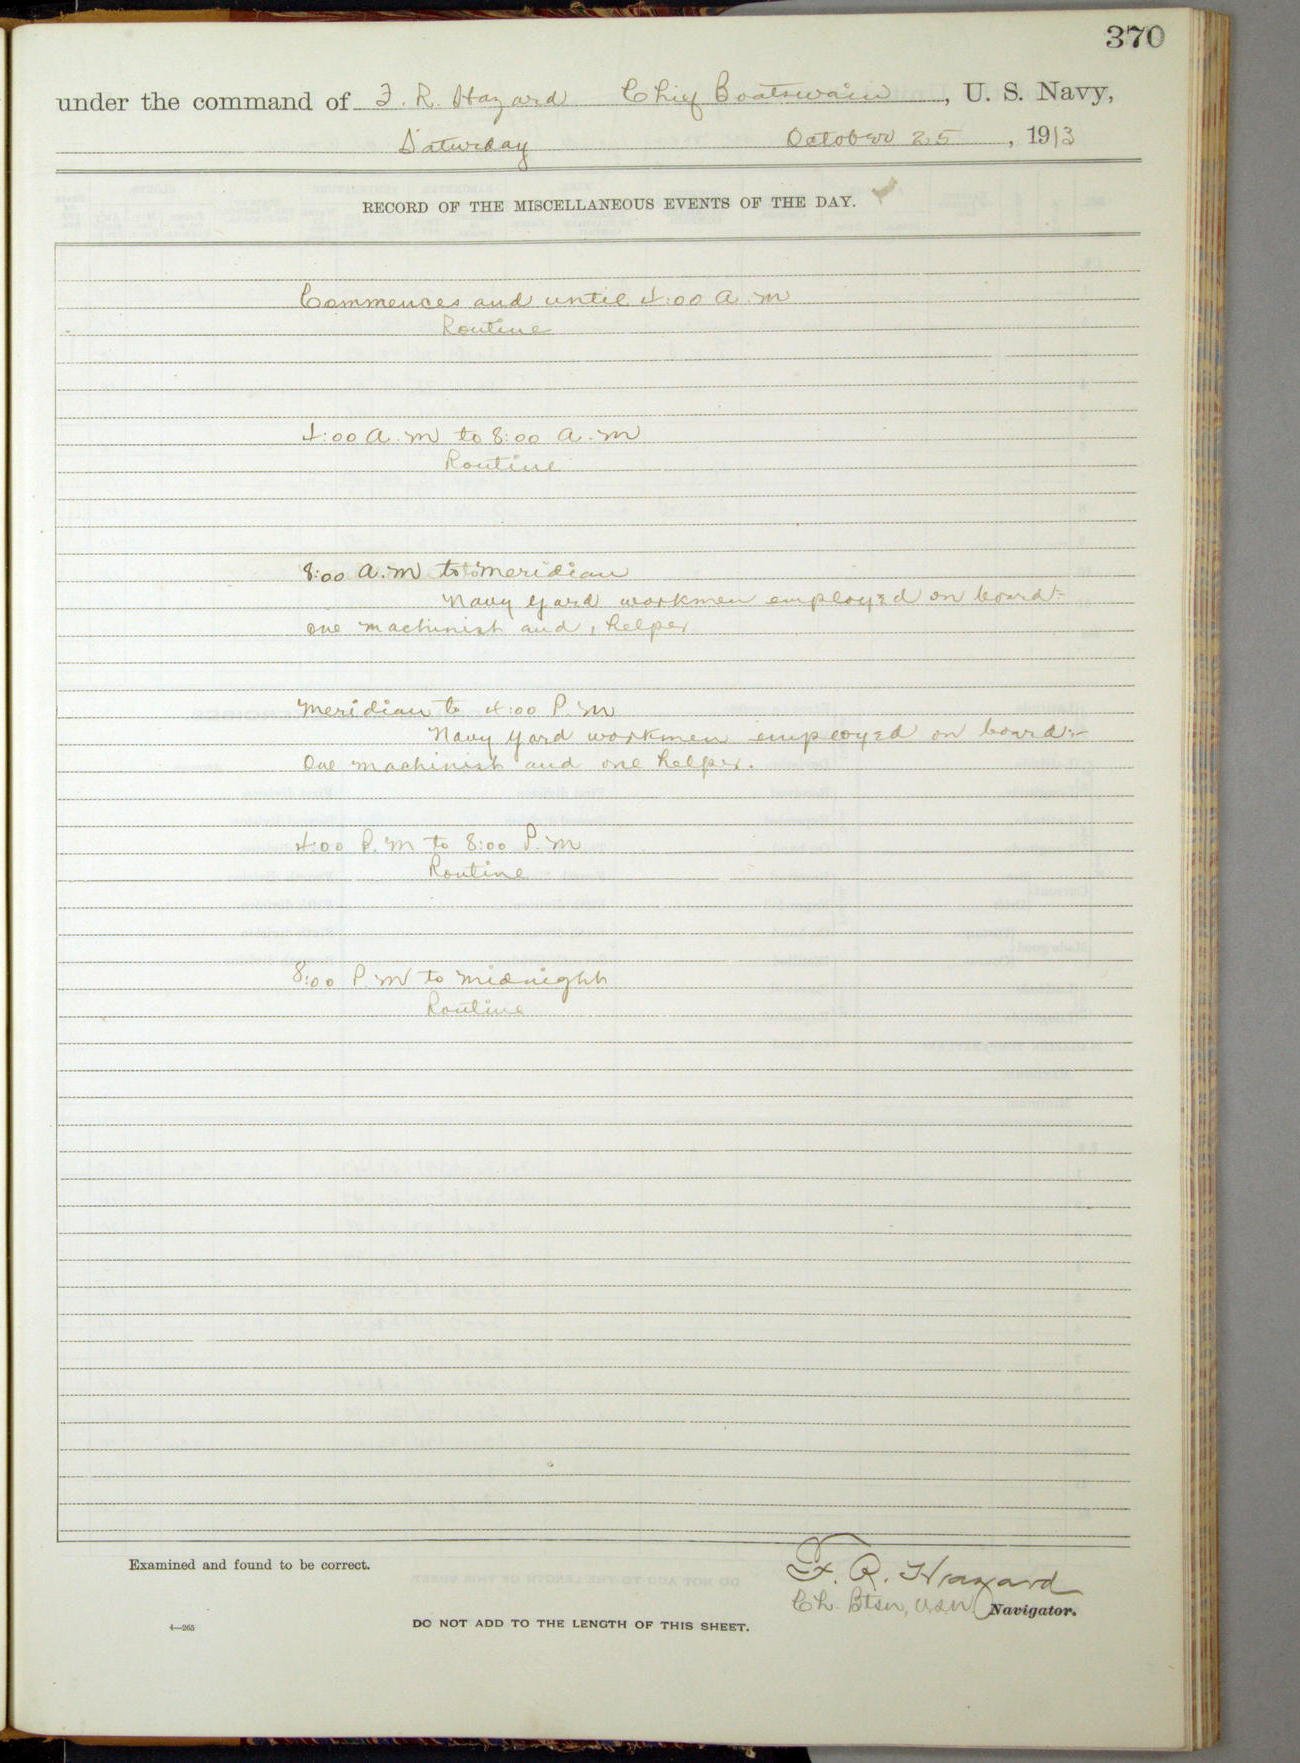 370
under the command of F. R. Hazard Chief Boatswain, U. S. Navy,
Saturday October 25, 1913
RECORD OF THE MISCELLANEOUS EVENTS OF THE DAY.
Commences and until 4:00 a.m
Routine
4:00 a.m to 8:00 a.m
Routine
8:00 a.m to meridian
Navy Yard workmen employed on board:-
one machinist and 1 helper
Meridian to 4:00 P.M
Navy Yard workmen employed on board:-
One machinist and one helper.
4:00 P.M to 8:00 P.M
Routine
8:00 P.M to midnight
Routine
Examined and found to be correct.
F. R. Hazard
Ch. Btsn, USN Navigator.
4—265
DO NOT ADD TO THE LENGTH OF THIS SHEET.